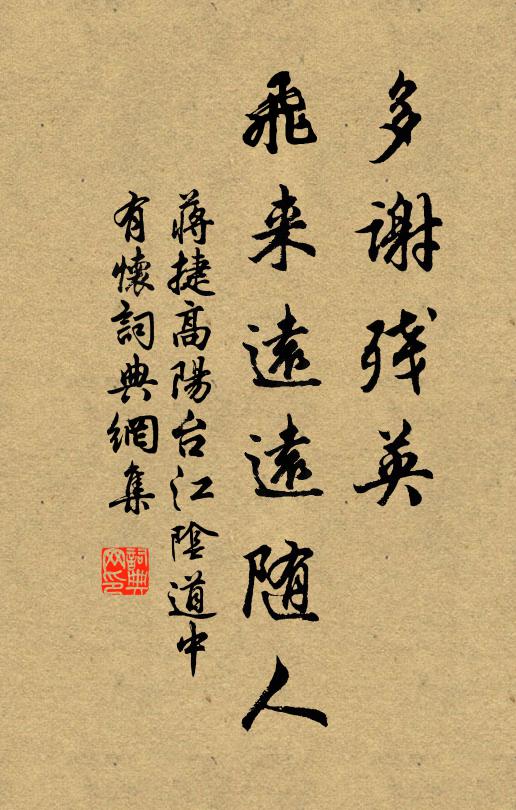 多谢残英
飛来遠遠随人
蒋捷高陽台江陰道中
有懷詞典網集
詞典
网印